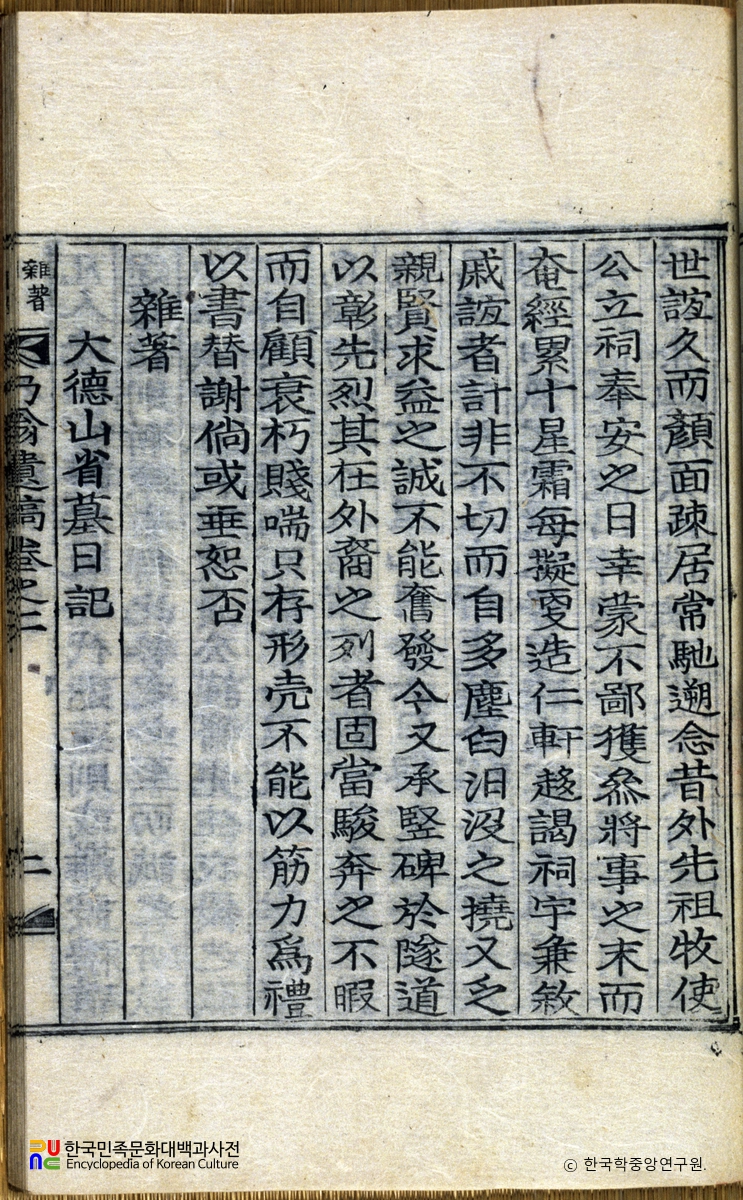 世誼久而顏面疎居常馳遡念昔外先祖牧使
公立祠奉安之日幸蒙不鄙獲叅將事之末而
奄經累十星霜每擬更造仁軒趍謁祠宇兼敘
戚誼者計非不切而自多塵臼汨沒之撓又乏
親賢求益之誠不能奮發今又承竪碑於隧道
以彰先烈其在外裔之列者固當駿奔之不暇
而自顧衰朽賤喘只存形壳不能以筋力爲禮
以書替謝倘或垂恕否
雜著
大德山省墓日記
雜著
乃翁遺稿卷之二
二
한국민족문화대백과사전
Encyclopedia of Korean Culture
ⓒ 한국학중앙연구원.